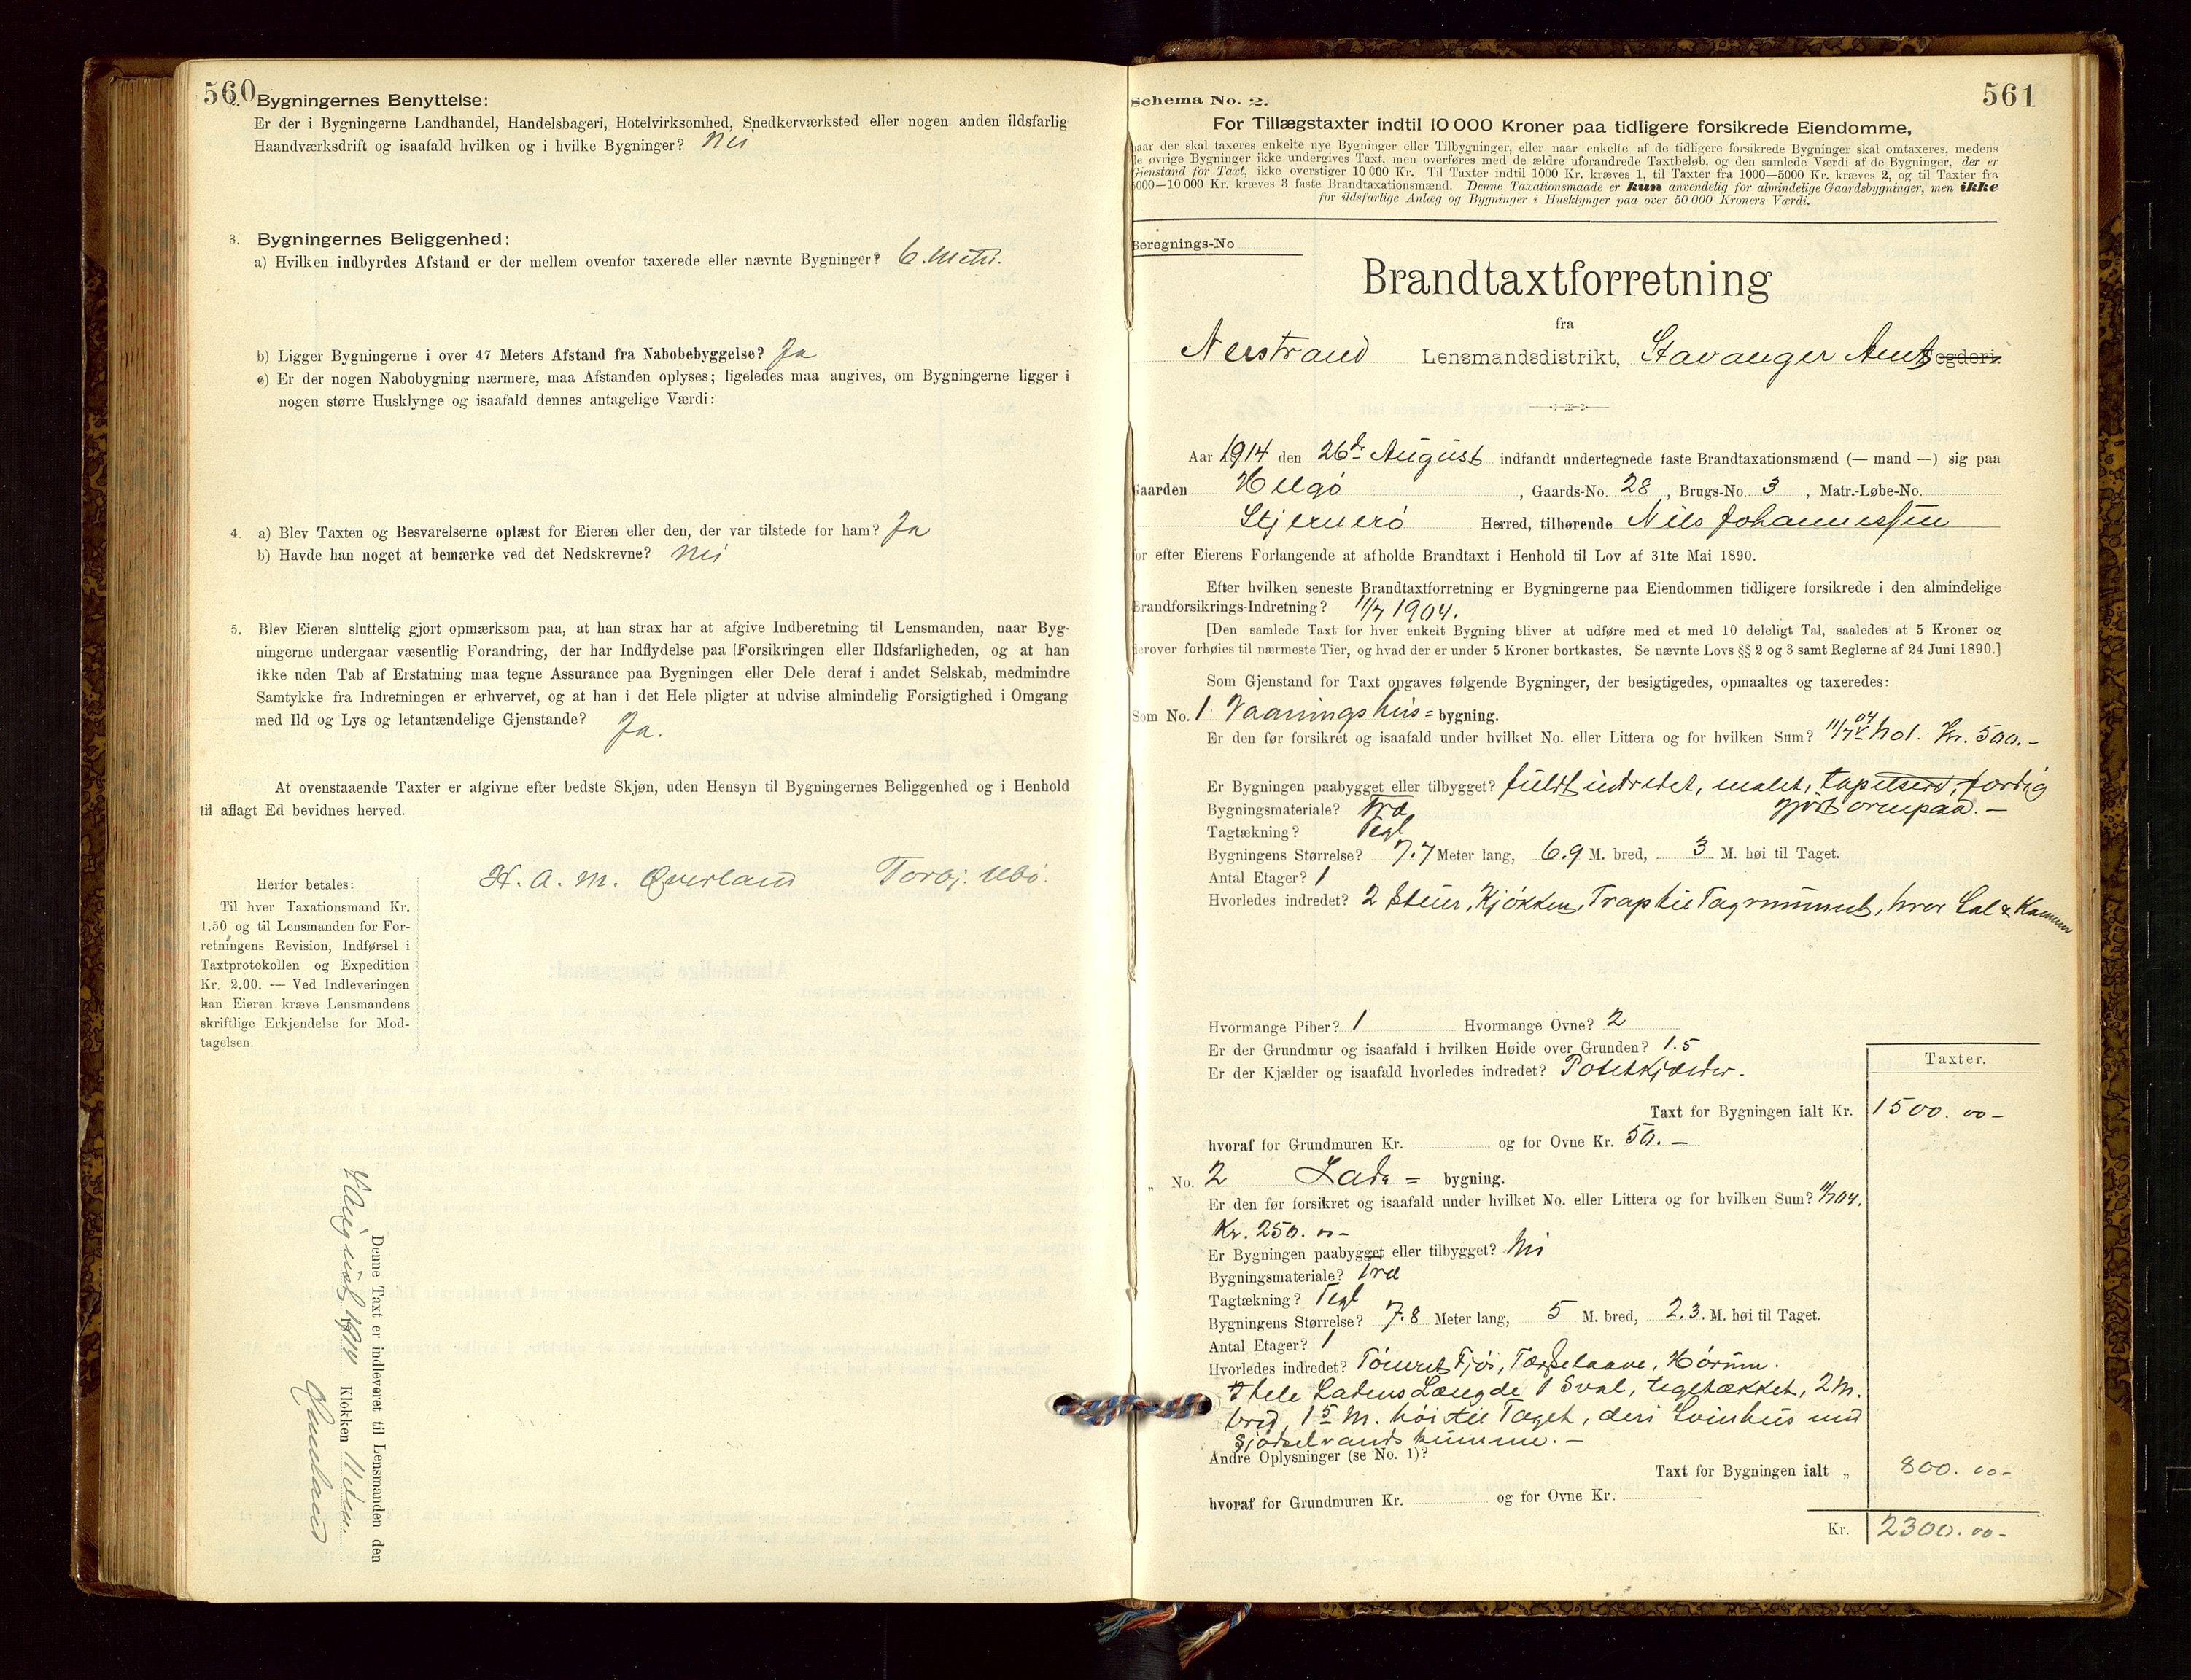 560
2. Bygningernes Benyttelse:
Er der i Bygningerne Landhandel, Handelsbageri, Hotelvirksomhed, Snedkerværksted eller nogen anden ildsfarlig
Haandværksdrift og isaafald hvilken og i hvilke Bygninger? Nei
3. Bygningernes Beliggenhed:
a) Hvilken indbyrdes Afstand er der mellem ovenfor taxerede eller nævnte Bygninger? 6. Metr.
b) Ligger Bygningerne i over 47 Meters Afstand fra Nabobebyggelse? Ja
c) Er der nogen Nabobygning nærmere, maa Afstanden oplyses; ligeledes maa angives, om Bygningerne ligger i
nogen større Husklynge og isaafald dennes antagelige Værdi:
4. a) Blev Taxten og Besvarelserne oplæst for Eieren eller den, der var tilstede for ham? Ja
b) Havde han noget at bemærke ved det Nedskrevne? Nei
5. Blev Eieren sluttelig gjort opmærksom paa, at han strax har at afgive Indberetning til Lensmanden, naar Byg-
ningerne undergaar væsentlig Forandring, der har Indflydelse paa Forsikringen eller Ildsfarligheden, og at han
ikke uden Tab af Erstatning maa tegne Assurance paa Bygningen eller Dele deraf i andet Selskab, medmindre
Samtykke fra Indretningen er erhvervet, og at han i det Hele pligter at udvise almindelig Forsigtighed i Omgang
med Ild og Lys og letantændelige Gjenstande? Ja.
At ovenstaaende Taxter er afgivne efter bedste Skjøn, uden Hensyn til Bygningernes Beliggenhed og i Henhold
til aflagt Ed bevidnes herved.
H. A. M. Øverland Torbj. Ubø.
Herfor betales:
Til hver Taxationsmand Kr.
1.50 og til Lensmanden for For-
retningens Revision, Indførsel i
Taxtprotokollen og Expedition
Kr. 2.00. — Ved Indleveringen
kan Eieren kræve Lensmandens
skriftlige Erkjendelse for Mod-
tagelsen.
Denne Taxt er indleveret til Lensmanden den
August 1914 Klokken 11
561
Schema No. 2.
For Tillægstaxter indtil 10 000 Kroner paa tidligere forsikrede Eiendomme,
naar der skal taxeres enkelte nye Bygninger eller Tilbygninger, eller naar enkelte af de tidligere forsikrede Bygninger skal omtaxeres, medens
de øvrige Bygninger ikke undergives Taxt, men overføres med de ældre uforandrede Taxtbeløb, og den samlede Værdi af de Bygninger, der er
Gjenstand for Taxt, ikke overstiger 10 000 Kr. Til Taxter indtil 1000 Kr. kræves 1, til Taxter fra 1000—5000 Kr. kræves 2, og til Taxter fra
5000—10 000 Kr. kræves 3 faste Brandtaxationsmænd. Denne Taxationsmaade er kun anvendelig for almindelige Gaardsbygninger, men ikke
for ildsfarlige Anlæg og Bygninger i Husklynger paa over 50 000 Kroners Værdi.
Beregnings-No
Brandtaxtforretning
fra
Nerstrand Lensmandsdistrikt, Stavanger Amt ogderi.
Aar 1914 den 26de August indfandt undertegnede faste Brandtaxationsmænd (— mand —) sig paa
Gaarden Helgø, Gaards-No. 28, Brugs-No. 3, Matr.-Løbe-No.
Stjernerø Herred, tilhørende Nils Johannessen
for efter Eierens Forlangende at afholde Brandtaxt i Henhold til Lov af 31te Mai 1890.
Efter hvilken seneste Brandtaxtforretning er Bygningerne paa Eiendommen tidligere forsikrede i den almindelige
Brandforsikrings-Indretning? 11/7 1904.
[Den samlede Taxt for hver enkelt Bygning bliver at udføre med et med 10 deleligt Tal, saaledes at 5 Kroner og
derover forhøies til nærmeste Tier, og hvad der er under 5 Kroner bortkastes. Se nævnte Lovs §§ 2 og 3 samt Reglerne af 24 Juni 1890.]
Som Gjenstand for Taxt opgaves følgende Bygninger, der besigtigedes, opmaaltes og taxeredes:
Som No. 1 Vaaningshus= bygning.
Er den før forsikret og isaafald under hvilket No. eller Littera og for hvilken Sum? 11/7 04 No 1. Kr. 500.-
Er Bygningen paabygget eller tilbygget? fuldt indredet, malet, tapetserd,
Bygningsmateriale? Træ
Tagtækning? Tegl
Bygningens Størrelse? 7.7 Meter lang, 6.9 M. bred, 3 M. høi til Taget.
Antal Etager? 1
Hvorledes indredet? 2 Stuer, Kjøkken, Trap til Tagrummet, hvor Sal & Kammer
Hvormange Piber? 1 Hvormange Ovne? 2
Er der Grundmur og isaafald i hvilken Høide over Grunden? 1.5
Er der Kjælder og isaafald hvorledes indredet? Potetkjælder.
Taxter.
Taxt for Bygningen ialt Kr. 1500.00-
hvoraf for Grundmuren Kr. og for Ovne Kr. 50.-
„ No. 2 Lade= bygning.
Er den før forsikret og isaafald under hvilket No. eller Littera og for hvilken Sum? 11/7 04.
Kr. 250.00-
Er Bygningen paabygget eller tilbygget? Nei
Bygningsmateriale? Træ
Tagtækning? Tegl
Bygningens Størrelse? 7.8 Meter lang, 5 M. bred, 2.3. M. høi til Taget.
Antal Etager? 1
Hvorledes indredet? Tømret Fjøs, Tærskelaave, Hørum.
I hele Ladens Længde 1 Sval, teglstækket, 2 M.
bred, 1 5 M. høi til Taget, deri Svinhus med
Gjødselvandskumme.-
Andre Oplysninger (se No. 1)?
Taxt for Bygningen ialt „ 800.00-
hvoraf for Grundmuren Kr. og for Ovne Kr.
Kr. 2300.00-